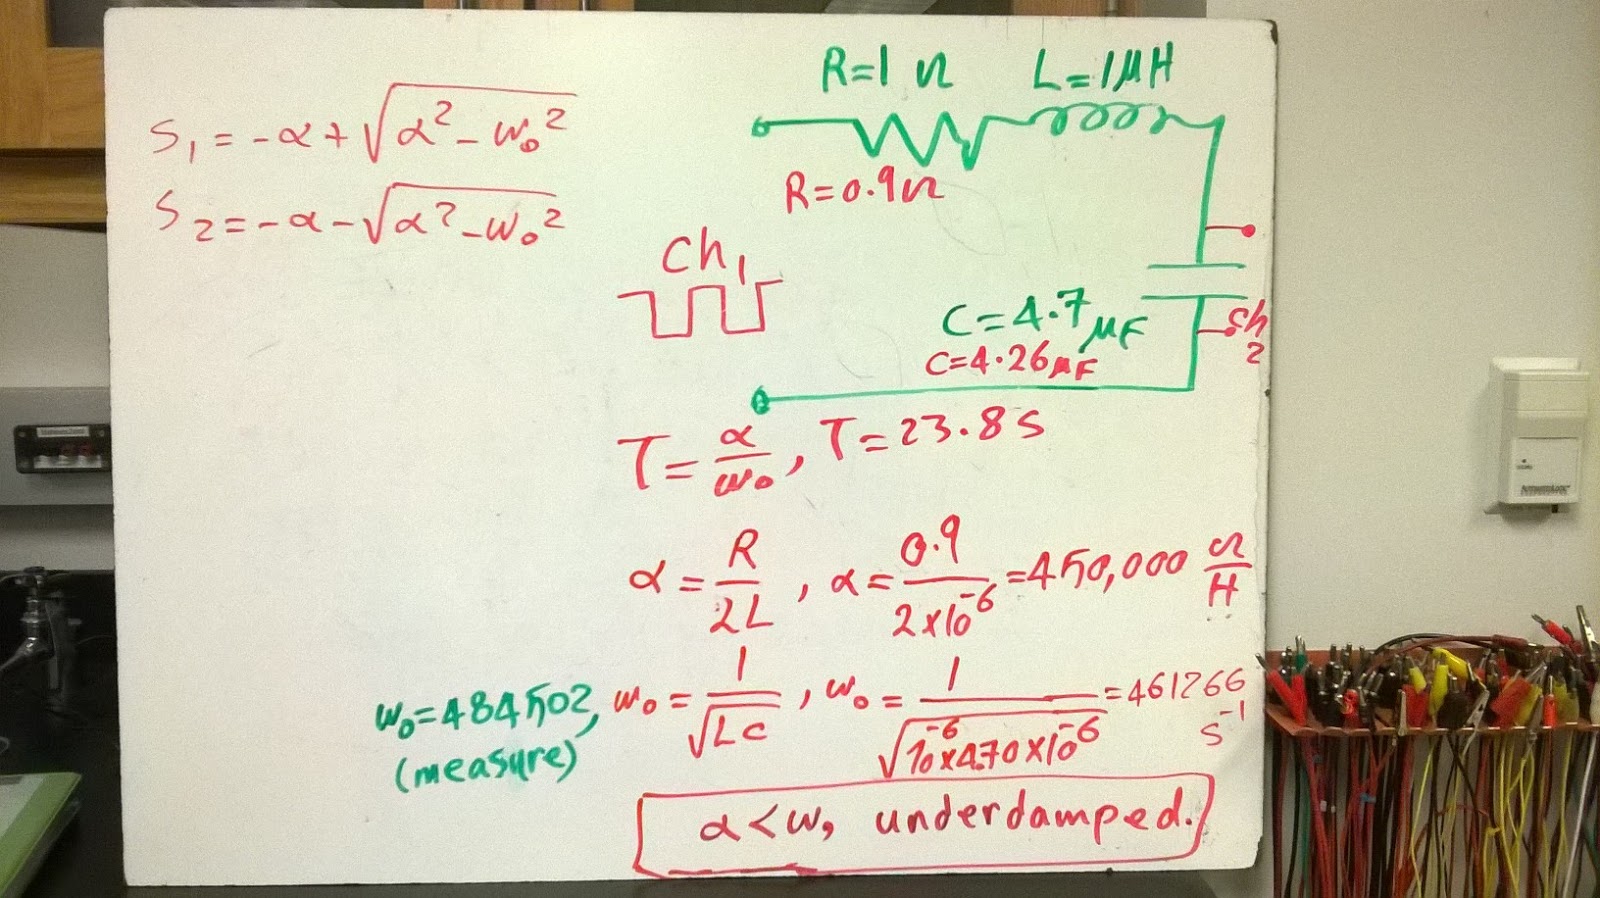 S₁ = -α + √(α² - ω₀²)
S₂ = -α - √(α² - ω₀²)
R=1 Ω
L=1μH
R=0.9Ω
Ch₁
C=4.7μF
C=4.26μF
Ch
2
T = α/ω₀, T=23.8s
α = R/2L, α = 0.9/(2×10⁻⁶) = 450,000 Ω/H
ω₀=484502, ω₀ = 1/√(LC), ω₀ = 1/√(10⁻⁶×4.70×10⁻⁶) = 461266 s⁻¹
(measure)
α<ω, underdamped.